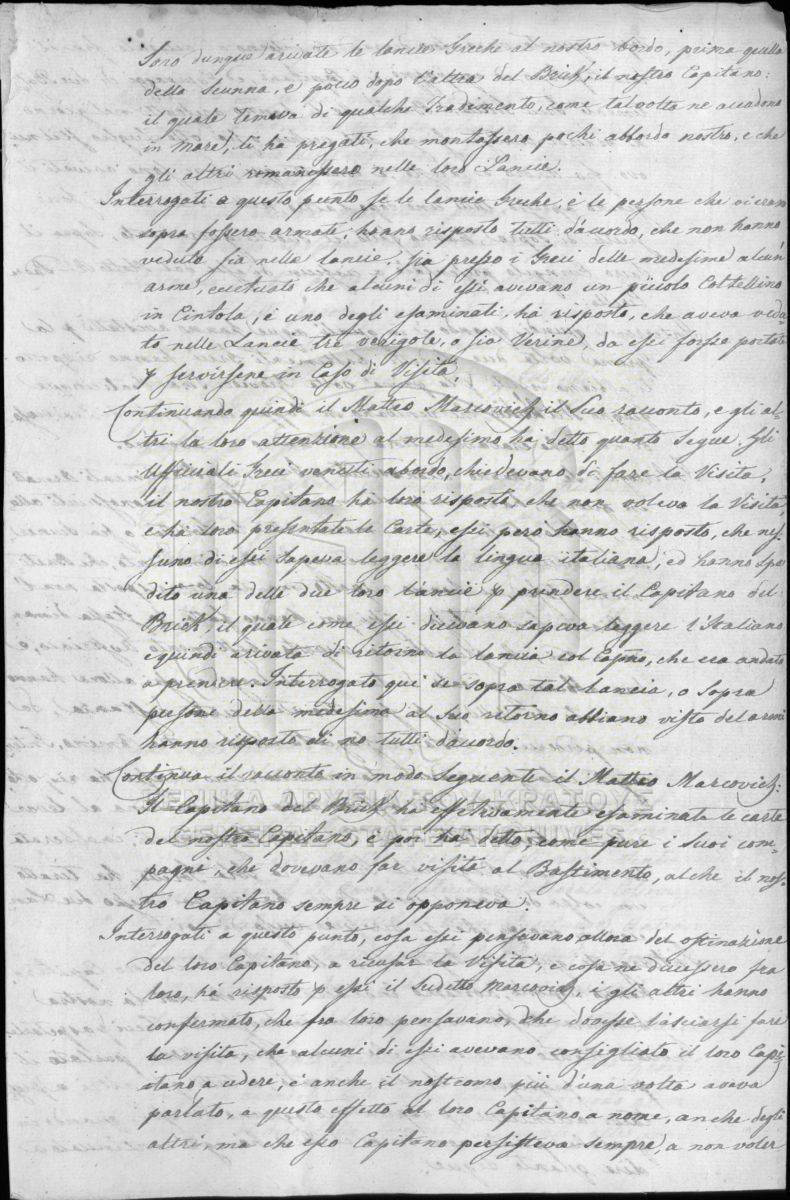 Sono dunque arivate le lancie Greche al nostro bordo, prima quella
della Scunna, e poco dopo l'altra del Brick, il nostro Capitano:
il quale temeva di qualche Tradimento, come talvolta ne accadono
in mare, li ha pregati, che montassero pochi abbordo nostro, e che
gli altri romanissero nelle loro Lancie.
Interrogati a questo punto se le lancie Greche, e le persone che vi eran
sopra fossero armate, hanno risposto tutti d'acordo, che non hanno
veduto sia nelle lancie, sia presso i Greci delle medesime alcun'
arme, eccettuato che alcuni di essi avevano un piccolo Coltellino
in Cintola, e uno degli esaminati, ha risposto, che aveva vedu-
to nelle Lancie tre verigole, o sia Verine, da essi forse portate
p servirsene in Caso di Visita.
Continuando quindi il Matteo Marcovich il Suo racconto, e gli al-
tri la loro attenzione al medesimo ha detto quanto segue. Gli
Ufficiali Greci venuti abordo, chiedevano di fare la Visita,
il nostro Capitano ha loro risposto, che non voleva la Visita
e ha loro presentate le Carte, essi però hanno risposto, che nes-
suno di essi sapeva leggere la lingua italiana, ed hanno spe-
dito una delle due loro lancie p prendere il Capitano del
Brick, il quale come essi dicevano sapeva leggere l'Italiano
e quindi arivata di ritorno la lancia col Capno, che era andato
a prenere. Interrogato qui se sopra tal lancia, o sopra
persone della medesima al Suo ritorno abbiano visto del armi
hanno risposto di no tutti d'acordo.
Continua il racconto in modo seguente il Matteo Marcovich:
Il Capitano del Brick ha effetivamente esaminata le carte
del nostro Capitano, e poi ha detto, come pure i Suoi com-
pagni, che dovevano far visita al Bastimento, al che il nos-
tro Capitano sempre si opponeva.
Interrogati a questo punto, cosa essi pensavano allora del ostinazione
del loro Capitano, a ricusar la Visita, e cosa ne dicessero fra
loro, ha risposto p essi il sudetto Marcovich, i gli altri hanno
confermato, che fra loro pensavano, che dovesse lasciarsi fare
la visita, che alcuni di essi avevano consigliato il loro Capi-
tano a cedere, e anche il nostromo più d'una volta aveva
parlato, a questo effetto al loro Capitano a nome, anche degli
altri, ma che esso Capitano persisteva sempre, a non voler
ΓΕΝΙΚΑ ΑΡΧΕΙΑ ΤΟΥ ΚΡΑΤΟΥΣ
GENERAL STATE ARCHIVES